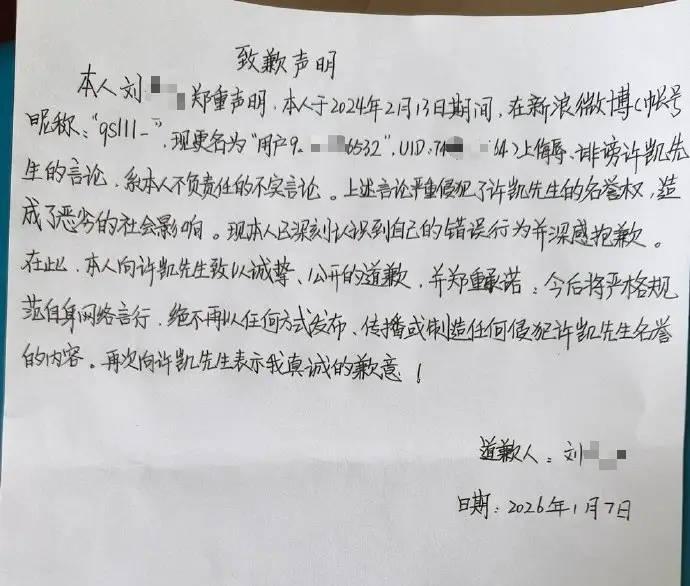 致歉声明
本人刘 郑重声明，本人于2024年2月13日期间，在新浪微博（帐号
昵称："qslll-"，现更名为"用户9 6532"，UID:74 64）上侮辱、诽谤许凯先
生的言论，系本人不负责任的不实言论。上述言论严重侵犯了许凯先生的名誉权，造
成了恶劣的社会影响。现本人已深刻认识到自己的错误行为并深感抱歉。
在此，本人向许凯先生致以诚挚、公开的道歉，并郑重承诺：今后将严格规
范自身网络言行，绝不再以任何方式发布、传播或制造任何侵犯许凯先生名誉
的内容。再次向许凯先生表示我真诚的歉意！
道歉人：刘
日期：2026年1月7日